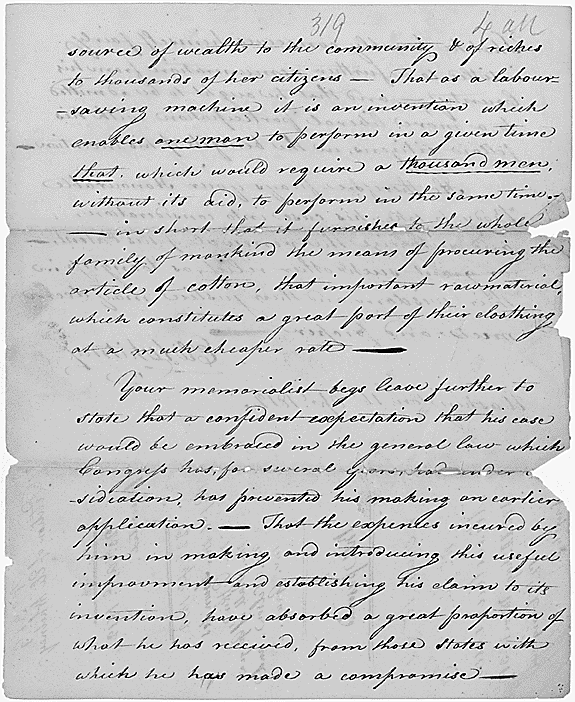 319 4 all
source of wealth to the community & of riches
to thousands of her citizens — That as a labour-
-saving machine it is an invention which
enables one man to perform in a given time
that. which would require a thousand men,
without its aid, to perform in the same time.—
— in short that it furnishes to the whole
family of mankind the means of procuring the
article of cotton, that important rawmaterial,
which constitutes a great part of their clothing
at a much cheaper rate —
Your memorialist begs leave further to
state that a confident expectation that his case
would be embraced in the general law which
Congress has, for several years, had under
-sideration, has prevented his making an earlier
application. — That the expences incured by
him in making and introducing this useful
improvment and establishing his claim to its
invention, have absorbed a great proportion of
what he has received, from those states with
which he has made a compromise —